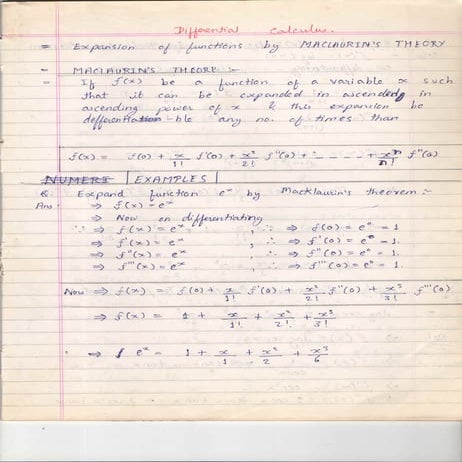 Differential Calculus.
= Expansion of functions by MACLAURIN'S THEORY
- MACLAURIN'S THEORY :-
= If f(x) be a function of a variable x such
that it can be expanded in ascendedg in
ascending power of x & this expansion be
defferentiation-ble any no. of times than
f(x) = f(0) + x/1! f'(0) + x²/2! f''(0) + ------ + xⁿ/n! fⁿ(0)
NUMERI EXAMPLES
Q. Expand function eˣ by Macklaurin's theorem :-
Ans: ⇒ f(x) = eˣ
⇒ Now on differentiating
∵ ⇒ f(x) = eˣ , ∴ ⇒ f(0) = e° = 1.
⇒ f'(x) = eˣ , ∴ ⇒ f'(0) = e° = 1.
⇒ f''(x) = eˣ , ∴ ⇒ f''(0) = e° = 1.
⇒ f'''(x) = eˣ , ∴ ⇒ f'''(0) = e° = 1.
Now ⇒ f(x) = f(0) + x/1! f'(0) + x²/2! f''(0) + x³/3! f'''(0)
⇒ f(x) = 1 + x/1! + x²/2! + x³/3!
⇒ eˣ = 1 + x/1 + x²/2 + x³/6